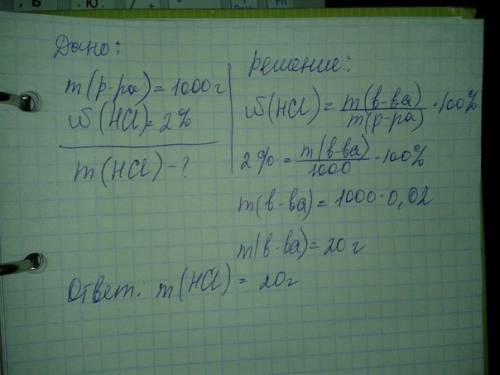 Дано:
m(р-ра) = 1000г
ω(HCl) = 2%
m(HCl) - ?
решение:
ω(HCl) = m(в-ва) / m(р-ра) · 100%
2% = m(в-ва) / 1000 · 100%
m(в-ва) = 1000 · 0,02
m(в-ва) = 20г
Ответ: m(HCl) = 20г